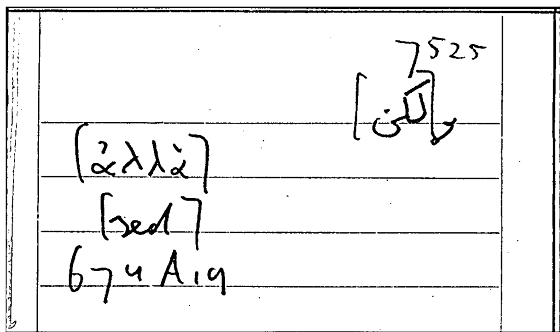 7525
[ولكن]
[ἀλλὰ]
[sed]
674 A 19